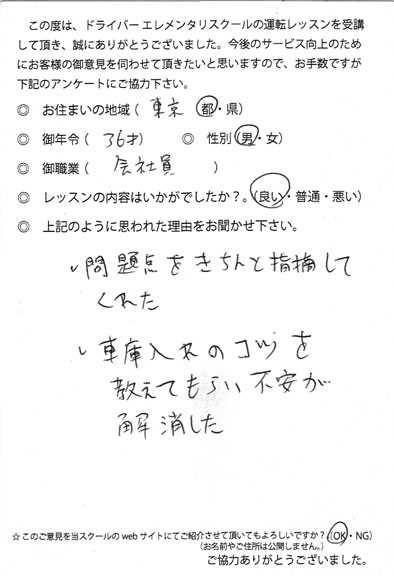 この度は、ドライバー エレメンタリスクールの運転レッスンを受講
して頂き、誠にありがとうございました。今後のサービス向上のため
にお客様の御意見を伺わせて頂きたいと思いますので、お手数ですが
下記のアンケートにご協力下さい。
◎ お住まいの地域( 東京 都・県)
◎ 御年令( 36才) ◎ 性別(男・女)
◎ 御職業( 会社員 )
◎ レッスンの内容はいかがでしたか?。(良い・普通・悪い)
◎ 上記のように思われた理由をお聞かせ下さい。
・問題点をきちんと指摘して
くれた
・車庫入れのコツを
教えてもらい不安が
解消した
☆このご意見を当スクールの web サイトにてご紹介させて頂いてもよろしいですか?(OK・NG)
(お名前やご住所は公開しません。)
ご協力ありがとうございました。